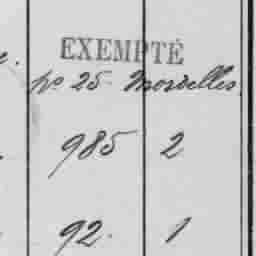 EXEMPTÉ
no 25 Mordelles
985 2
92. 1